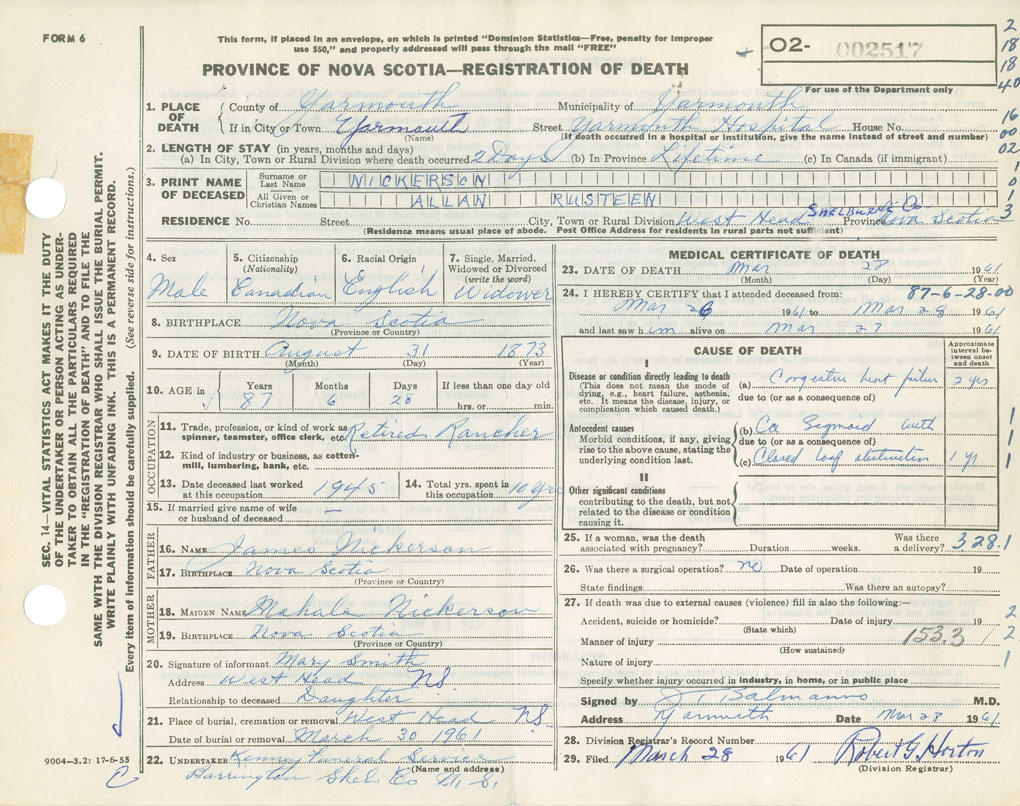 FORM 6
This form, if placed in an envelope, on which is printed "Dominion Statistics—Free, penalty for improper
use $50," and properly addressed will pass through the mail "FREE"
PROVINCE OF NOVA SCOTIA—REGISTRATION OF DEATH
O2- 002517
For use of the Department only
2
18
18
40
16
00
02
1
0
1
3
SEC. 14—VITAL STATISTICS ACT MAKES IT THE DUTY
OF THE UNDERTAKER OR PERSON ACTING AS UNDER-
TAKER TO OBTAIN ALL THE PARTICULARS REQUIRED
IN THE "REGISTRATION OF DEATH" AND TO FILE THE
SAME WITH THE DIVISION REGISTRAR WHO SHALL ISSUE THE BURIAL PERMIT.
WRITE PLAINLY WITH UNFADING INK. THIS IS A PERMANENT RECORD.
Every item of information should be carefully supplied. (See reverse side for instructions.)
1. PLACE OF DEATH County of Yarmouth Municipality of Yarmouth
If in City or Town Yarmouth Street Yarmouth Hospital House No.
(Name) (If death occurred in a hospital or institution, give the name instead of street and number)
2. LENGTH OF STAY (in years, months and days)
(a) In City, Town or Rural Division where death occurred 2 Days (b) In Province Lifetime (c) In Canada (if immigrant)
3. PRINT NAME OF DECEASED Surname or Last Name NICKERSON
All Given or Christian Names ALLAN RUSTEEN
SHELBURNE Co
RESIDENCE No. Street City, Town or Rural Division West Head Province Nova Scotia
(Residence means usual place of abode. Post Office Address for residents in rural parts not sufficient)
4. Sex 5. Citizenship (Nationality) 6. Racial Origin 7. Single, Married, Widowed or Divorced (write the word)
Male Canadian English Widower
8. BIRTHPLACE Nova Scotia
(Province or Country)
9. DATE OF BIRTH August 31 1873
(Month) (Day) (Year)
10. AGE in Years Months Days If less than one day old
87 6 28 hrs. or min.
OCCUPATION
11. Trade, profession, or kind of work as spinner, teamster, office clerk, etc. Retired Rancher
12. Kind of industry or business, as cotton-mill, lumbering, bank, etc.
13. Date deceased last worked at this occupation 1945 14. Total yrs. spent in this occupation 10 yrs
15. If married give name of wife or husband of deceased —
FATHER
16. NAME James Nickerson
17. BIRTHPLACE Nova Scotia
(Province or Country)
MOTHER
18. MAIDEN NAME Mahala Nickerson
19. BIRTHPLACE Nova Scotia
(Province or Country)
20. Signature of informant Mary Smith
Address West Head NS.
Relationship to deceased Daughter
21. Place of burial, cremation or removal West Head NS.
Date of burial or removal March 30 1961
22. UNDERTAKER Kenny Funeral Service
(Name and address)
Barrington Shel. Co N. S.
9004—3.2: 17-6-55
MEDICAL CERTIFICATE OF DEATH
23. DATE OF DEATH Mar 28 1961
(Month) (Day) (Year)
24. I HEREBY CERTIFY that I attended deceased from: 87-6-28-00
Mar 26 1961 to Mar 28 1961
and last saw him alive on Mar 28 1961
CAUSE OF DEATH Approximate interval between onset and death
I
Disease or condition directly leading to death (a) Congestive heart failure 2 yrs
(This does not mean the mode of dying, e.g., heart failure, asthenia, etc. It means the disease, injury, or complication which caused death.) due to (or as a consequence of)
Antecedent causes (b) Ca Sigmoid with
Morbid conditions, if any, giving rise to the above cause, stating the underlying condition last. due to (or as a consequence of)
(c) Closed loop obstruction 1 yr
1
1
1
II
Other significant conditions
contributing to the death, but not related to the disease or condition causing it.
25. If a woman, was the death associated with pregnancy? Duration weeks. Was there a delivery? 328.1
26. Was there a surgical operation? no Date of operation 19
State findings Was there an autopsy?
27. If death was due to external causes (violence) fill in also the following:—
Accident, suicide or homicide? Date of injury 19 2
(State which)
Manner of injury 153.3 1 2
(How sustained)
Nature of injury 1
Specify whether injury occurred in industry, in home, or in public place
Signed by J. Balmanno M.D.
Address Yarmouth Date Mar 28 1961
28. Division Registrar's Record Number
29. Filed March 28 1961 Robert G. Horton
(Division Registrar)